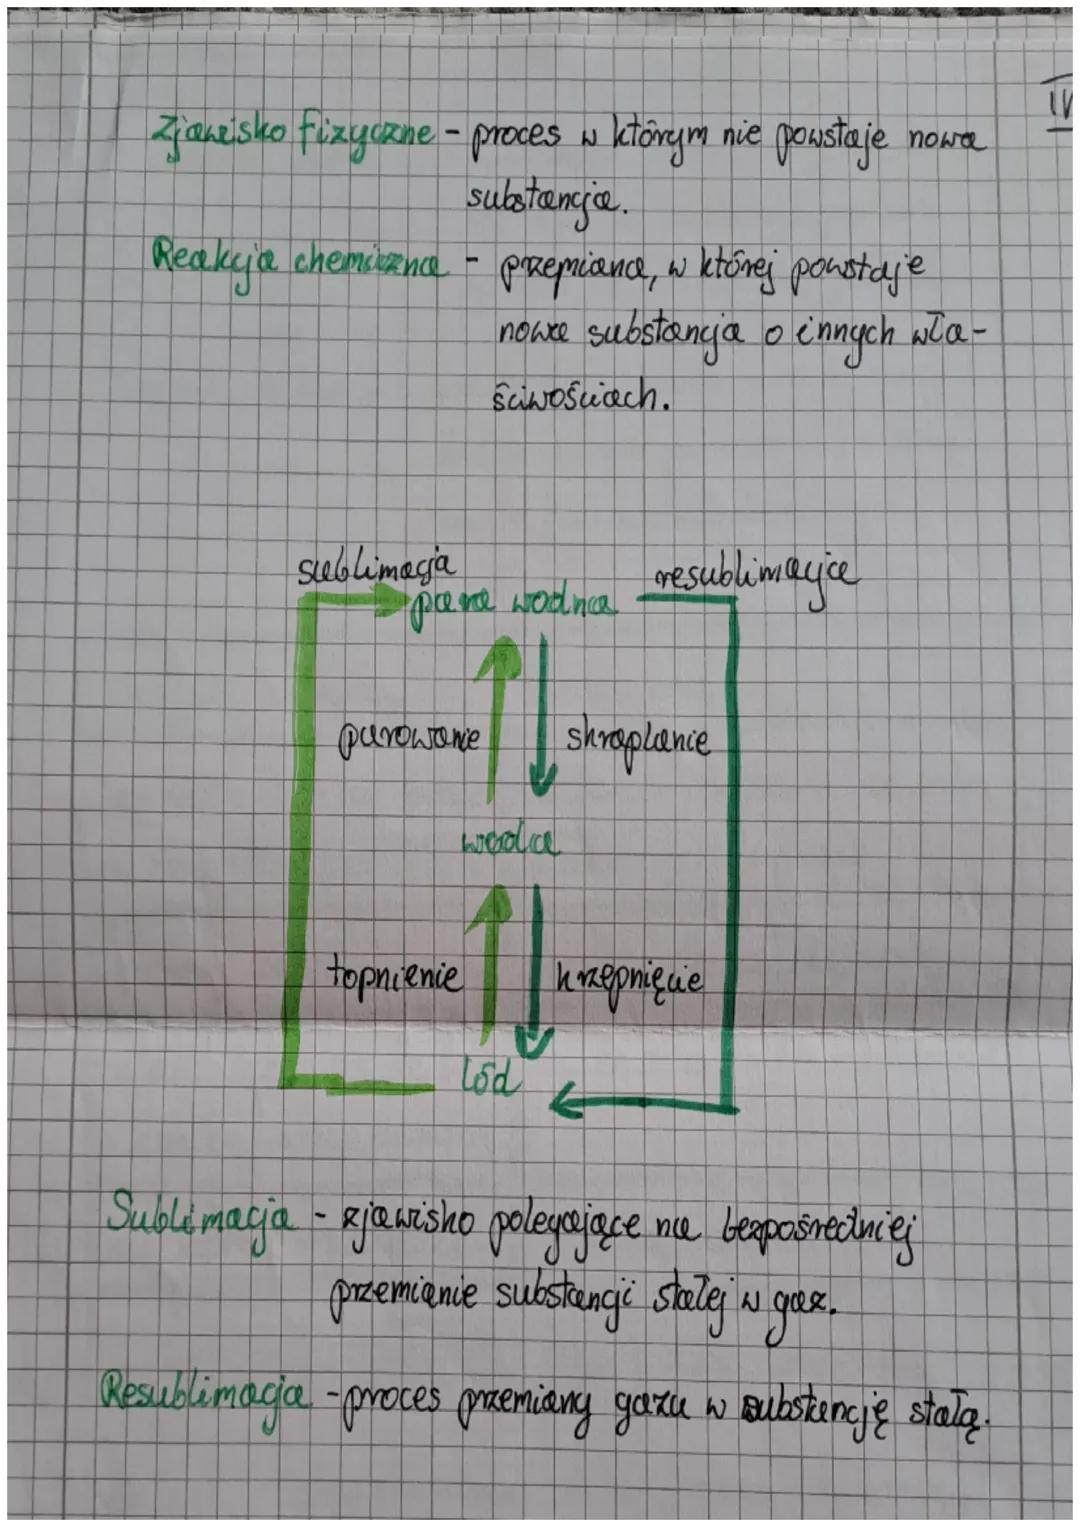 IV
Zjawisko fizyczne - proces w którym nie powstaje nowa
substancja.
Reakcja chemiczna - przemiana, w której powstaje
nowa substancja o innych wła-
ściwościach.
sublimacja resublimacja
para wodna
parowanie skraplanie
woda
topnienie krzepnięcie
lód
Sublimacja - zjawisko polegające na bezpośredniej
przemianie substancji stałej w gaz.
Resublimacja - proces przemiany gazu w substancję stałą.